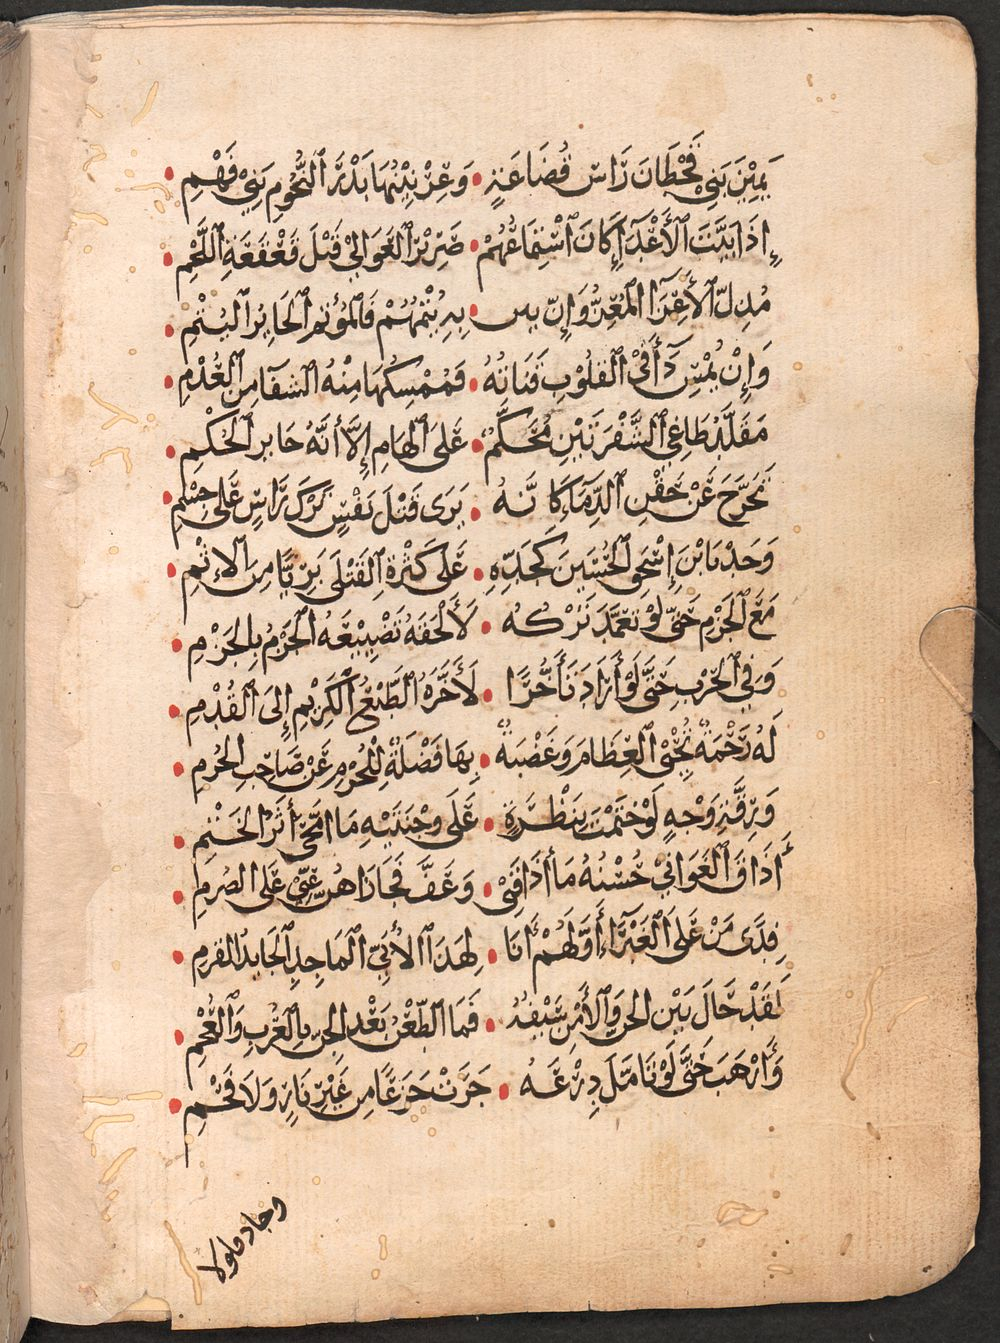 يَمِيْنَ بَنِيْ قَحْطَانَ رَاسَ قُضَاعَةٍ • وَعِرْنِيْنُهَا بَدْرَ النُّجُومِ بَنِيْ فَهْمِ •
إِذَا بَيَّتَ الْأَعْدَآءِ كَانَ اسْتِمَاعُهُمْ • صَرِيْرَ الْعَوَالِيْ قَبْلَ قَعْقَعَةِ اللُّجْمِ •
مُذِلّ الْأَعِزَّاءِ الْمُعِزُّ وَإِنْ يس • بِهِ يُتْمُهُمْ فَالْمُؤتم الْجَابِر الْيُتْمِ •
وَإِنْ يُمْسِ دَآءً فِى الْقُلُوْبِ قَنَاتُهُ • فَمُمْسِكُهَا مِنْهُ الشفآمن الْعُدْمِ •
مَقَلَّدُ طَاغِي الشَّفْرَتَيْنِ مُحَكَّمٌ • عَلَى الْهَامِ إِلَّا أَنَّهُ جَايرُ الْحُكْمِ •
تَحَرَّجَ عَنْ حَقْنِ الدِّمَآءِ كَانَّهُ • يَرَى قَتْلَ نَفْسٍ تَرْكَ رَاسٍ عَلَى جِسْمِ •
وَجَدْنَا ابْنَ إِسْحَقَ الْحُسَيْنَ كَجَدِّهِ • عَلَى كَثْرَةِ الْقَتْلَى بَرِيْئًا مِنَ الْإِثْمِ •
مَعَ الْحَزْمِ حَتَّى لَوْ تَعَمَّدَ تَرْكَهُ • لَأَلْحَقَهُ تَضْيِيْعُهُ الْحَزْمَ بِالْحَزْمِ •
وَفِي الْحَرْبِ حَتَّى لَوْ أَرَادَ تَأَخُّرًا • لَأَخَّرَهُ الطَّبْعُ الْكَرِيْمُ إِلَى الْقُدْمِ •
لَهُ رَحْمَةٌ تُحْيِى الْعِظَامَ وَغَضْبَةٌ • بِهَا فَضْلَةٌ لِلْجُرْمِ عَنْ صَاحِبِ الْجُرْمِ •
وَرِقَّةِ وَجْهٍ لَوْ خَتَمْتَ بِنَظْرَةٍ • عَلَى وَجْنَتَيْهِ مَا امَّحَى أَثَرُ الْخَتْمِ •
أَذَاقَ الْغَوَانِيْ حُسْنُهُ مَا أَذَاقَنِي • وَعَفَّ فَجَازَاهُنَّ عَنِّيْ عَلَى الصُّرْمِ •
فِدًى مَنْ عَلَى الْغَبْرَآءِ أَوَّلُهُمْ أَنَا • لِهَذَا الْأَبِيِّ الْمَاجِدِ الْجَايدُ الْقَرْمِ •
لَقَدْ حَالَ بَيْنَ الْجِنِّ وَالْأَمْنِ سَيْفُهُ • فَمَا الظَّنُّ بَعْدَ الْجِنِّ بِالْعُرْبِ وَالْعُجْمِ •
وَأَرْهَبَ حَتَّى لَوْ تَامَّلَ دِرْعَهُ • جَرَتْ جَزَعًا مِنْ غَيْرِ نَارٍ وَلَا فَحْمِ •
وجاد فلولا